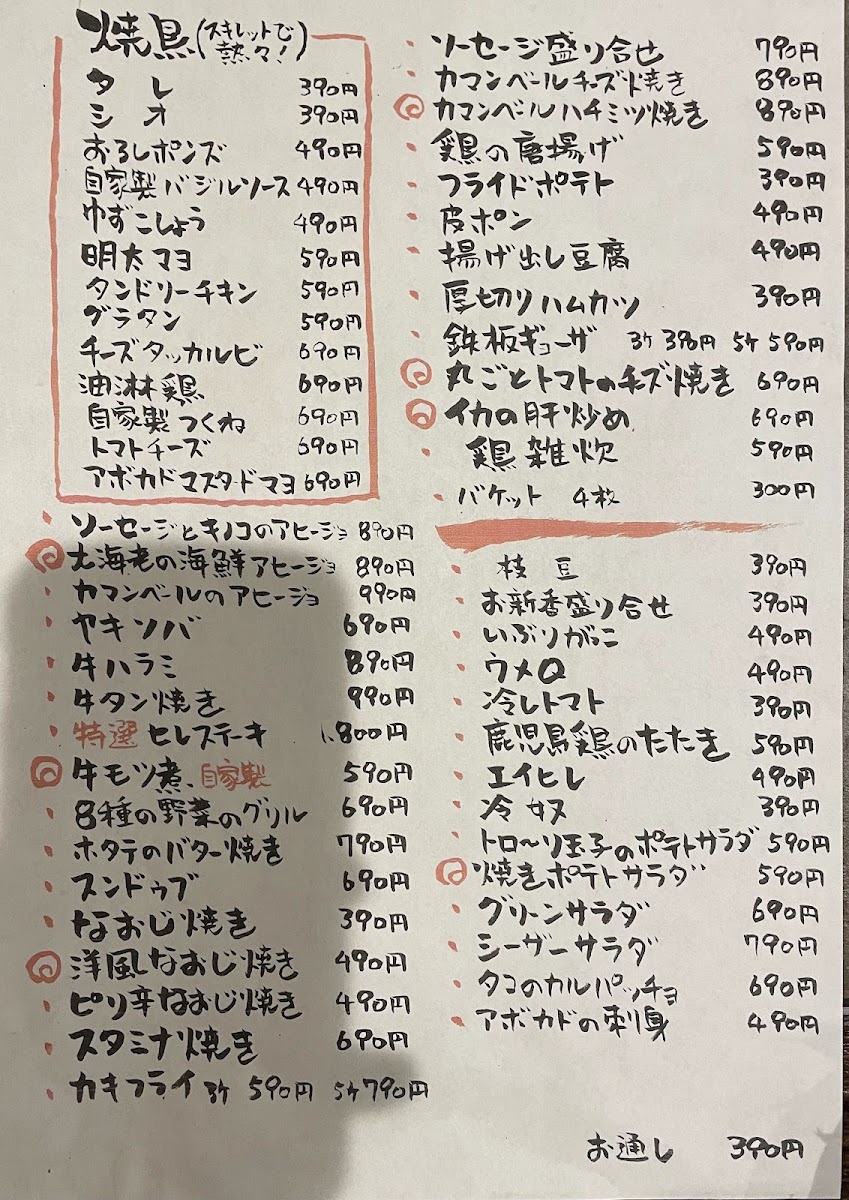 焼鳥(スキレットで熱々!)
タレ 390円
シオ 390円
おろしポンズ 490円
自家製バジルソース 490円
ゆずこしょう 490円
明太マヨ 590円
タンドリーチキン 590円
グラタン 590円
チーズタッカルビ 690円
油淋鶏 690円
自家製つくね 690円
トマトチーズ 690円
アボカドマスタードマヨ 690円
ソーセージとキノコのアヒージョ 890円
大海老の海鮮アヒージョ 890円
カマンベールのアヒージョ 990円
ヤキソバ 690円
牛ハラミ 890円
牛タン焼き 990円
特選セレステーキ 1,800円
牛モツ煮、自家製 590円
8種の野菜のグリル 690円
ホタテのバター焼き 790円
スンドゥブ 690円
なおじ焼き 390円
洋風なおじ焼き 490円
ピリ辛なおじ焼き 490円
スタミナ焼き 690円
カキフライ 3ケ 590円 5ケ 790円
ソーセージ盛り合せ 790円
カマンベールチーズ焼き 890円
カマンベールハチミツ焼き 890円
鶏の唐揚げ 590円
フライドポテト 390円
皮ポン 490円
揚げ出し豆腐 490円
厚切りハムカツ 390円
鉄板ギョーザ 3ケ 390円 5ケ 590円
丸ごとトマトのチーズ焼き 690円
イカの肝炒め 690円
鶏雑炊 590円
バケット 4枚 300円
枝豆 390円
お新香盛り合せ 390円
いぶりがっこ 490円
ウメQ 490円
冷しトマト 390円
鹿児島鶏のたたき 590円
エイヒレ 490円
冷奴 390円
トロ〜リ玉子のポテトサラダ 590円
焼きポテトサラダ 590円
グリーンサラダ 690円
シーザーサラダ 790円
タコのカルパッチョ 690円
アボカドの刺身 490円
お通し 390円